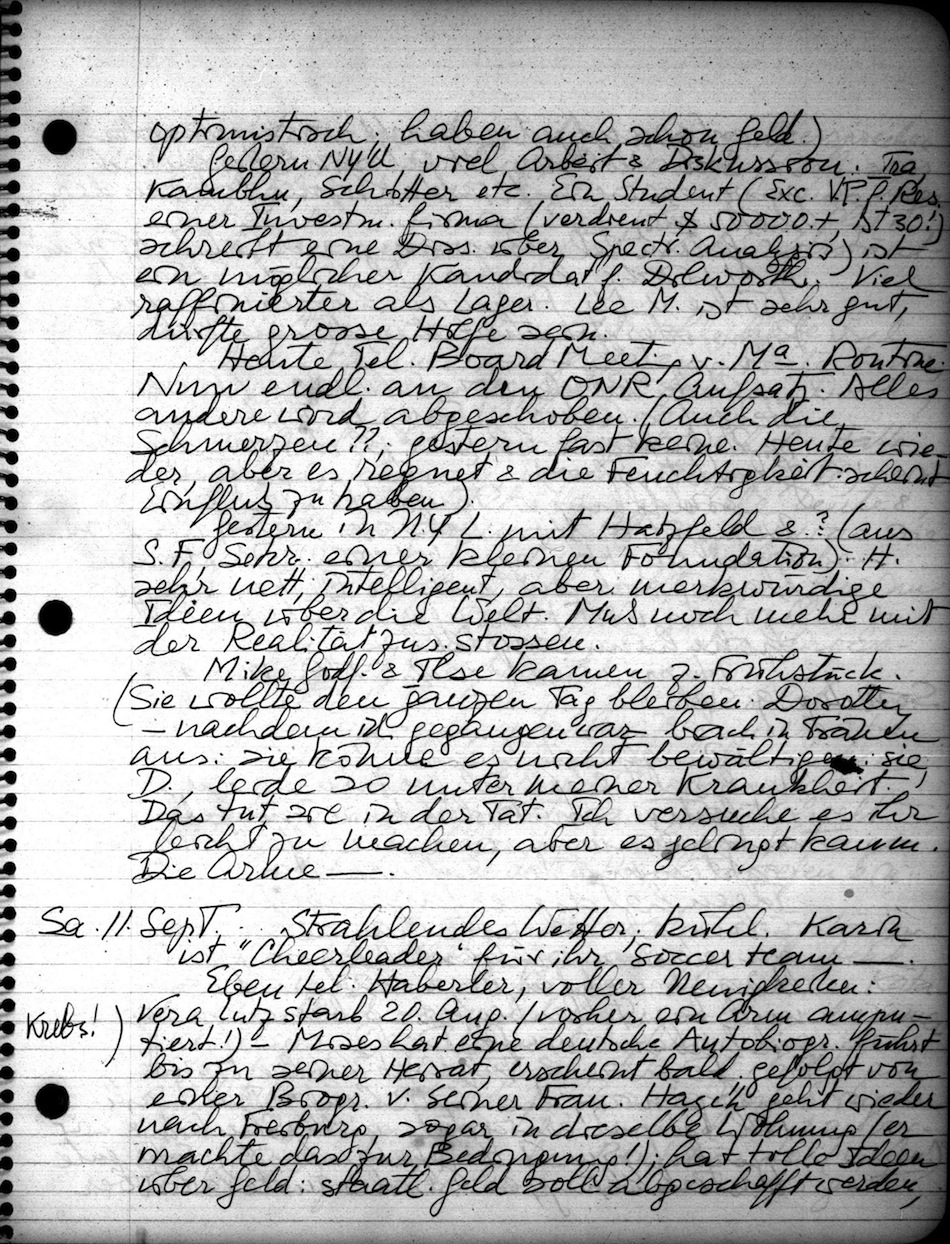 optimistisch. haben auch schon Geld.)
Gestern NYU viel Arbeit & Diskussion. Ina,
Kambhu, Schotter etc. Ein Student (Exc. V.P. f. Res.
einer Investm. firma (verdient $ 50000.+, ist 30!)
schreibt eine Diss. über Spectr. Analysis) ist
ein möglicher Kandidat f. Dilworth. Viel
raffinierter als Lager. Lee M. ist sehr gut,
dürfte grosse Hilfe sein.
Heute Tel. Board Meet. v. Ma. Routine.
Nun endl. an den ONR Aufsatz. Alles
andere wird abgeschoben. (Auch die
Schmerzen??, gestern fast keine. Heute wie-
der, aber es regnet & die Feuchtigkeit scheint
Einfluß zu haben).
Gestern in N.Y. L. mit Hatzfeld & ? (aus
S.F. Sekr. einer kleinen Foundation). H.
sehr nett, intelligent, aber merkwürdige
Ideen über die Welt. Muß noch mehr mit
der Realität zus. stossen.
Mike Godf. & Ilse kamen z. Frühstück.
(Sie wollte den ganzen Tag bleiben. Dorothy
– nachdem ich gegangen war – brach in Tränen
aus: sie könne es nicht bewältigen: sie,
D., leide so unter meiner Krankheit.
Das tut sie in der Tat. Ich versuche es ihr
leicht zu machen, aber es gelingt kaum.
Die Arme —.
Sa. 11. Sept. Strahlendes Wetter, kühl. Karin
ist "Cheerleader" für ihr Soccer team —.
Eben tel. Haberler, voller Neuigkeiten:
Krebs!) Vera Lutz starb 20. Aug. (vorher ein Arm ampu-
tiert!) – Moses hat eine deutsche Autobiogr. führt
bis zu seiner Heirat, erscheint bald, gefolgt von
einer Biogr. v. seiner Frau. Hayek geht wieder
nach Freiburg, sogar in dieselbe Wohnung (er
machte das zur Bedingung!), hat tolle Ideen
über Geld: staatl. Geld soll abgeschafft werden,